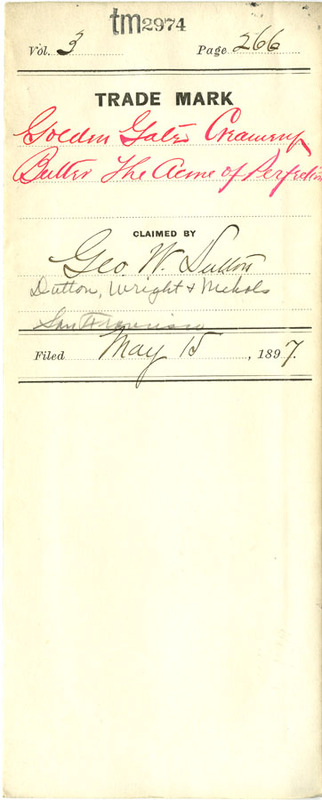 tm2974
Vol. 3 Page 266
TRADE MARK
Golden Gate Creamery
Butter The Acme of Perfection
CLAIMED BY
Geo W. Dutton
Dutton, Wright & Nichols
San Francisco
Filed May 15, 1897.